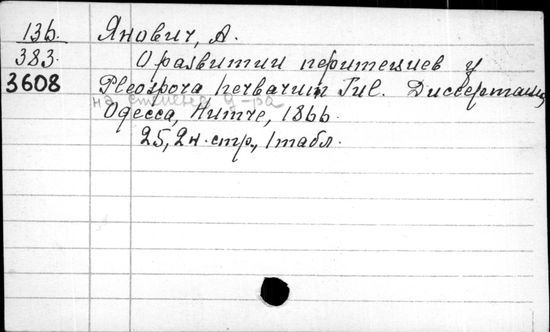 136. Янович, А.
383. О развитии перитециев у
3608 Pleospora herbarum Tul. Диссертация
на степень д-ра
Одесса, Нитче, 1866.
25, 2 н. стр., 1 табл.